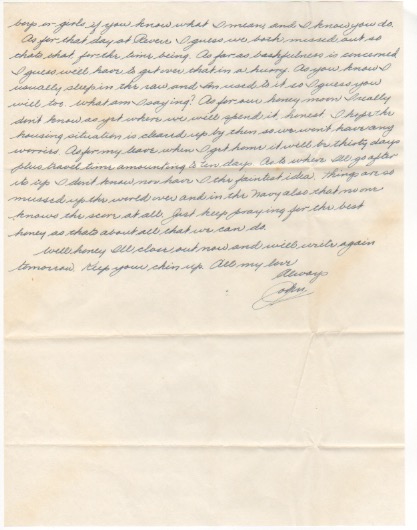 boys or girls, if you know what I mean, and I know you do.
As for that day at Revere I guess we both missed out so
thats that for the time being. As far as bashfulness is concerned
I guess well have to get over that in a hurry. As you know I
usually sleep in the raw and Im used to it so I guess you
will too. what am I saying? As for our honey moon I really
dont know as yet where we will spend it, honest. I hope the
housing situation is cleared up by then so we wont have any
worries. As for my leave when I get home it will be thirty days
plus travel time amounting to ten days. As to where Ill go after
its up I dont know nor have I the faintest idea. Things are so
mussed up the world over and in the Navy also that no one
knows the score at all. Just keep praying for the best
honey as thats about all that we can do.
Well honey Ill close out now and will write again
tomorrow. Keep your chin up. All my love
Always
John